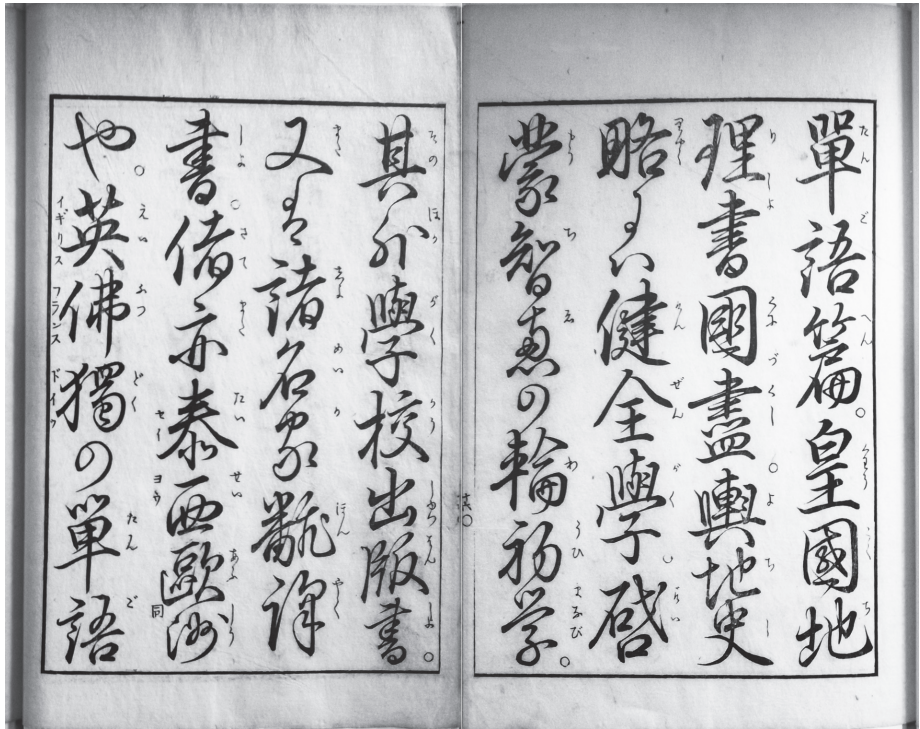 單語篇。皇國地
理書國盡。輿地史
略にハ健全學。啓
蒙智惠の輪初学。
其外學校出版書。
又は諸名家飜譯
書。偖亦泰西歐洲
也。英佛獨の單語